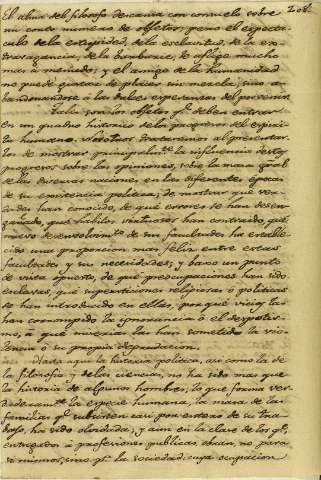 208.
El alma del filosofo descansa con consuelo sobre
un corto numero de objetos; pero el espectá-
culo de la estupidez, de la esclavitud, de la ex-
travagancia, de la barbarie, le aflige mucho
mas à menudo; y el amigo de la humanidad
no puede gustar de placer sin mezcla, sino a-
bandonandose à las dulces esperanzas del porvenir.
Tales son los objetos qe. deben entrar
en un quadro historico de los progresos del espiri-
tu humano. Nosotros trataremos al presentar-
los de mostrar principalmte. la influencia de estos
progresos sobre las opiniones, sobre la masa gral.
de las diversas naciones en las diferentes épocas
de su existencia politica; de mostrar qué ver-
dades han conocido, de qué errores se han desen-
gañado, qué habitos virtuosos han contraido, qué
nuevo desenvolvimto. de sus facultades ha estable-
cido una proporcion mas feliz entre estas
facultades y sus necesidades; y baxo un punto
de vista opuesto, de qué preocupaciones han sido
esclavas, qué supersticiones religiosas ó politicas
se han introducido en ellas, por qué vicios las
han corrompido la ignorancia ó el despotis-
mo, à qué miserias las han sometido la vio-
lencia ó su propia degradacion.
Hasta aqui la historia politica, asi como la de
la filosofia y de las ciencias, no ha sido mas que
la historia de algunos hombres; lo que forma ver-
daderamte. la especie humana, la masa de las
familias qe. subsisten casi por entero de su tra-
bajo, ha sido olvidada; y aun en la clase de los qe.,
entregados à profesiones publicas obran, no para
si mismos, sino pr. la sociedad; cuya ocupacion